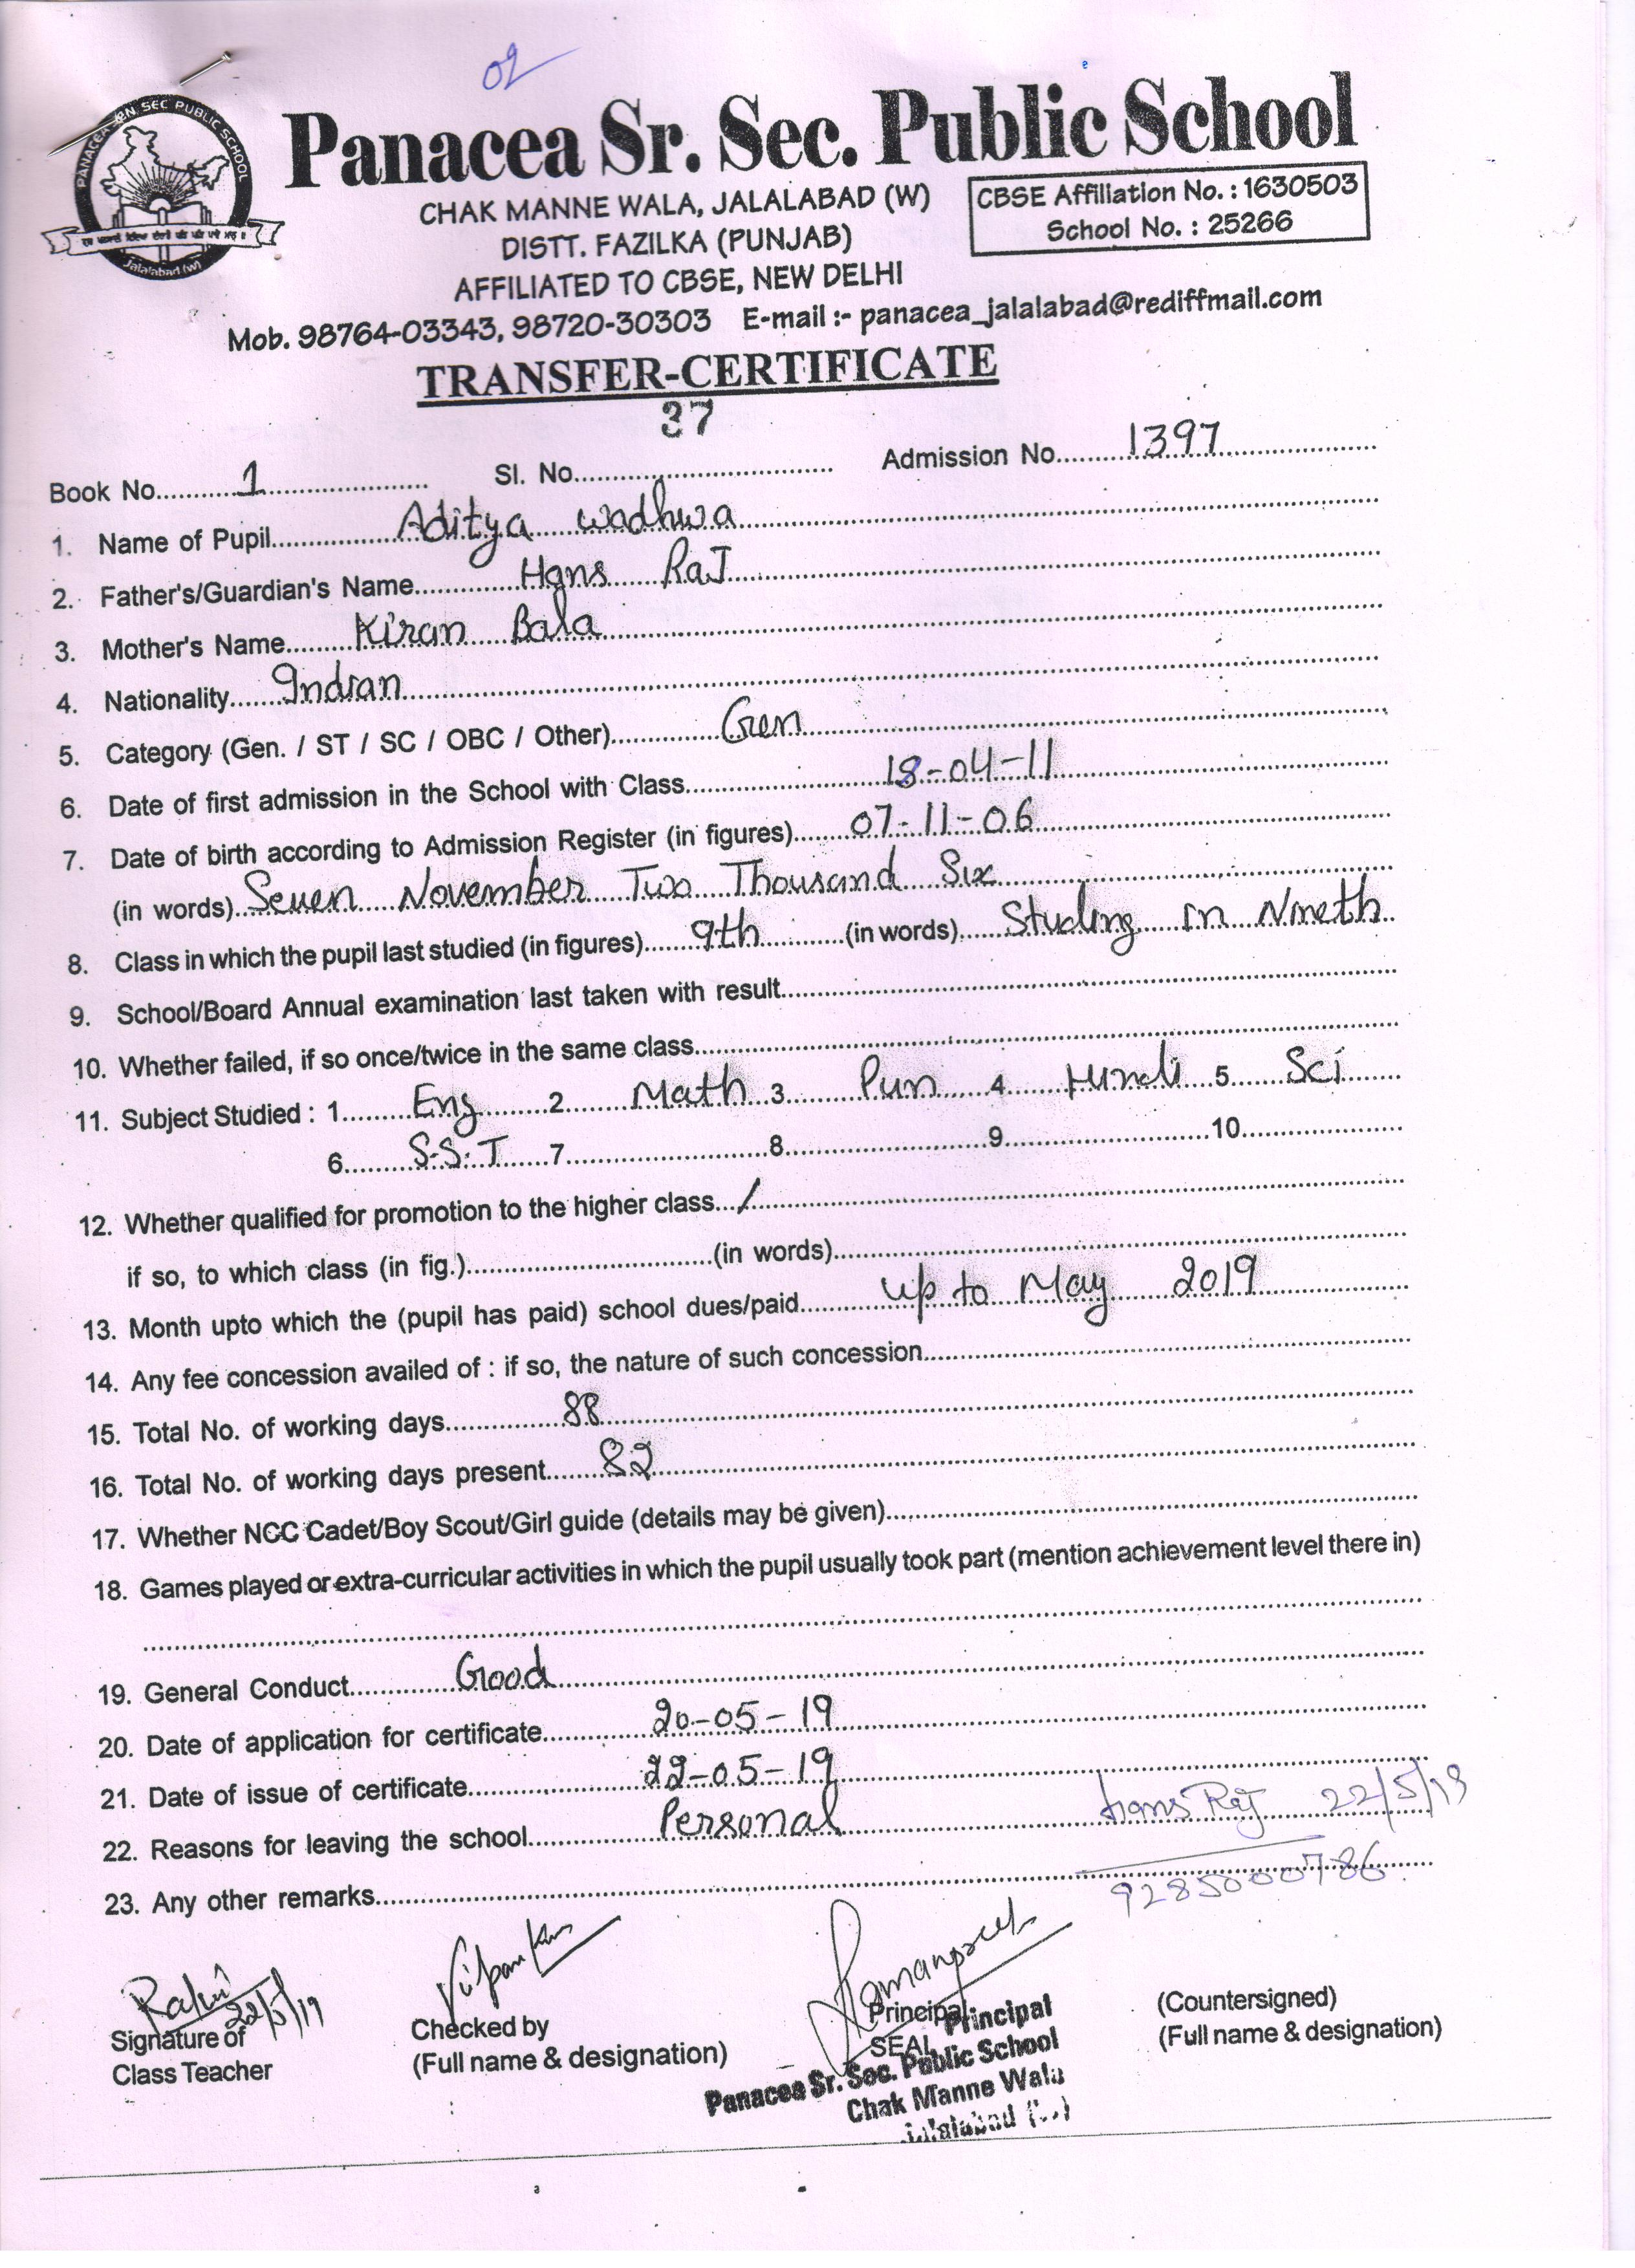 02
PANACEA SEN. SEC PUBLIC SCHOOL
Jalalabad (W)
Panacea Sr. Sec. Public School
CHAK MANNE WALA, JALALABAD (W)
DISTT. FAZILKA (PUNJAB)
AFFILIATED TO CBSE, NEW DELHI
CBSE Affiliation No. : 1630503
School No. : 25266
Mob. 98764-03343, 98720-30303 E-mail :- panacea_jalalabad@rediffmail.com
TRANSFER-CERTIFICATE
37
Book No. 1 Sl. No. Admission No. 1397
1. Name of Pupil Aditya Wadhwa
2. Father's/Guardian's Name Hans Raj
3. Mother's Name Kiran Bala
4. Nationality Indian
5. Category (Gen. / ST / SC / OBC / Other) Gen
6. Date of first admission in the School with Class 18-04-11
7. Date of birth according to Admission Register (in figures) 07-11-06
(in words) Seven November Two Thousand Six
8. Class in which the pupil last studied (in figures) 9th (in words) Studing in Nineth
9. School/Board Annual examination last taken with result
10. Whether failed, if so once/twice in the same class
11. Subject Studied : 1 Eng 2 Math 3 Pun 4 Hindi 5 Sci
6 S.S.T 7 8 9 10
12. Whether qualified for promotion to the higher class /
if so, to which class (in fig.) (in words)
13. Month upto which the (pupil has paid) school dues/paid up to May 2019
14. Any fee concession availed of : if so, the nature of such concession
15. Total No. of working days 88
16. Total No. of working days present 82
17. Whether NCC Cadet/Boy Scout/Girl guide (details may be given)
18. Games played or extra-curricular activities in which the pupil usually took part (mention achievement level there in)
19. General Conduct Good
20. Date of application for certificate 20-05-19
21. Date of issue of certificate 22-05-19
22. Reasons for leaving the school Personal Hans Raj 22/5/19
23. Any other remarks 9285000786
22/5/19
Signature of
Class Teacher
Checked by
(Full name & designation)
Principal
SEAL
Principal
Panacea Sr. Sec. Public School
Chak Manne Wala
Jalalabad (W)
(Countersigned)
(Full name & designation)